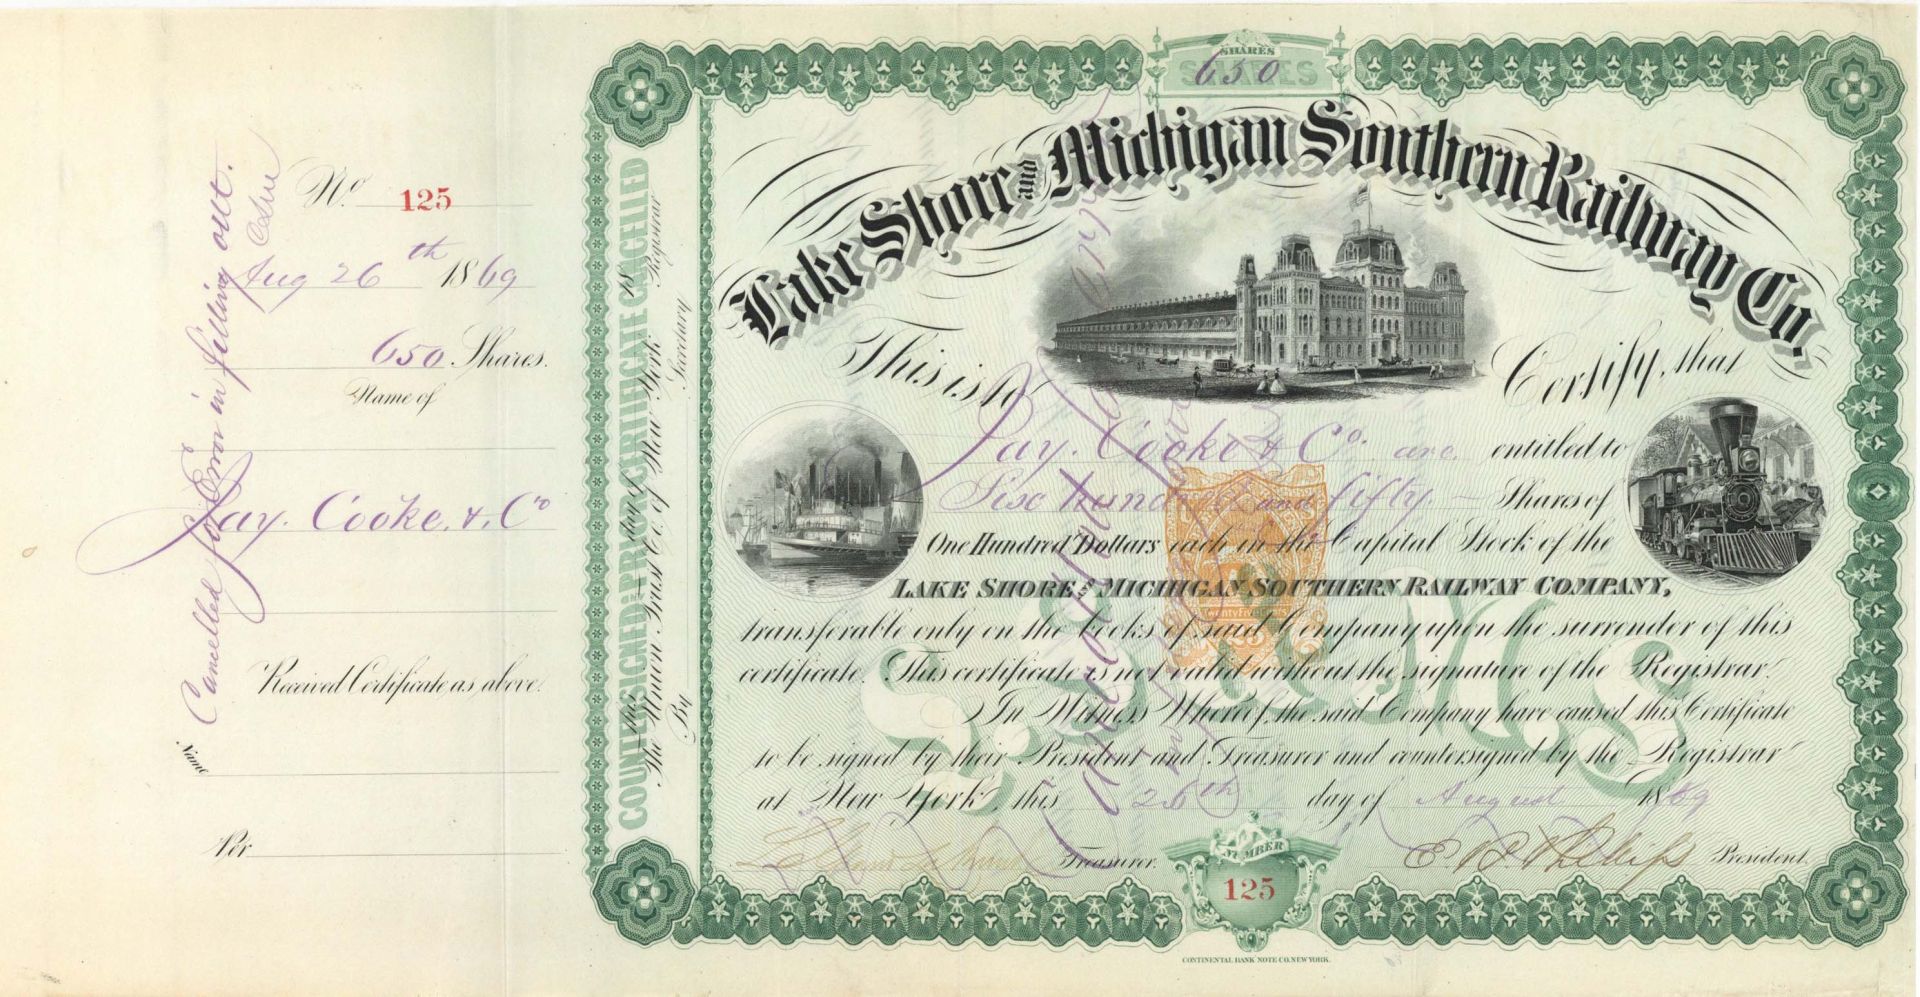 No. 125
Aug 26th 1869
650 Shares.
Name of
Jay. Cooke. & Co
Received Certificate as above.
Name
Per
Cancelled for Error in filling out.
COUNTERSIGNED AND REGISTERED
the Union Trust Co. of New York
By Secretary
Registrar
18
SHARES
SHARES
650
Lake Shore and Michigan Southern Railway Co.
This is to Certify, that
Jay. Cooke & Co. are entitled to
Six hundred and fifty — Shares of
One Hundred Dollars each in the Capital Stock of the
LAKE SHORE AND MICHIGAN SOUTHERN RAILWAY COMPANY,
transferable only on the books of said Company upon the surrender of this
certificate. This certificate is not valid without the signature of the Registrar.
In Witness Whereof, the said Company have caused this Certificate
to be signed by their President and Treasurer and countersigned by the Registrar
at New York, this 26th day of August 1869
Treasurer.
E B Phillips President.
NUMBER
125
L.S. & M.S.
Twenty Five Cents
25
CONTINENTAL BANK NOTE CO. NEW YORK.